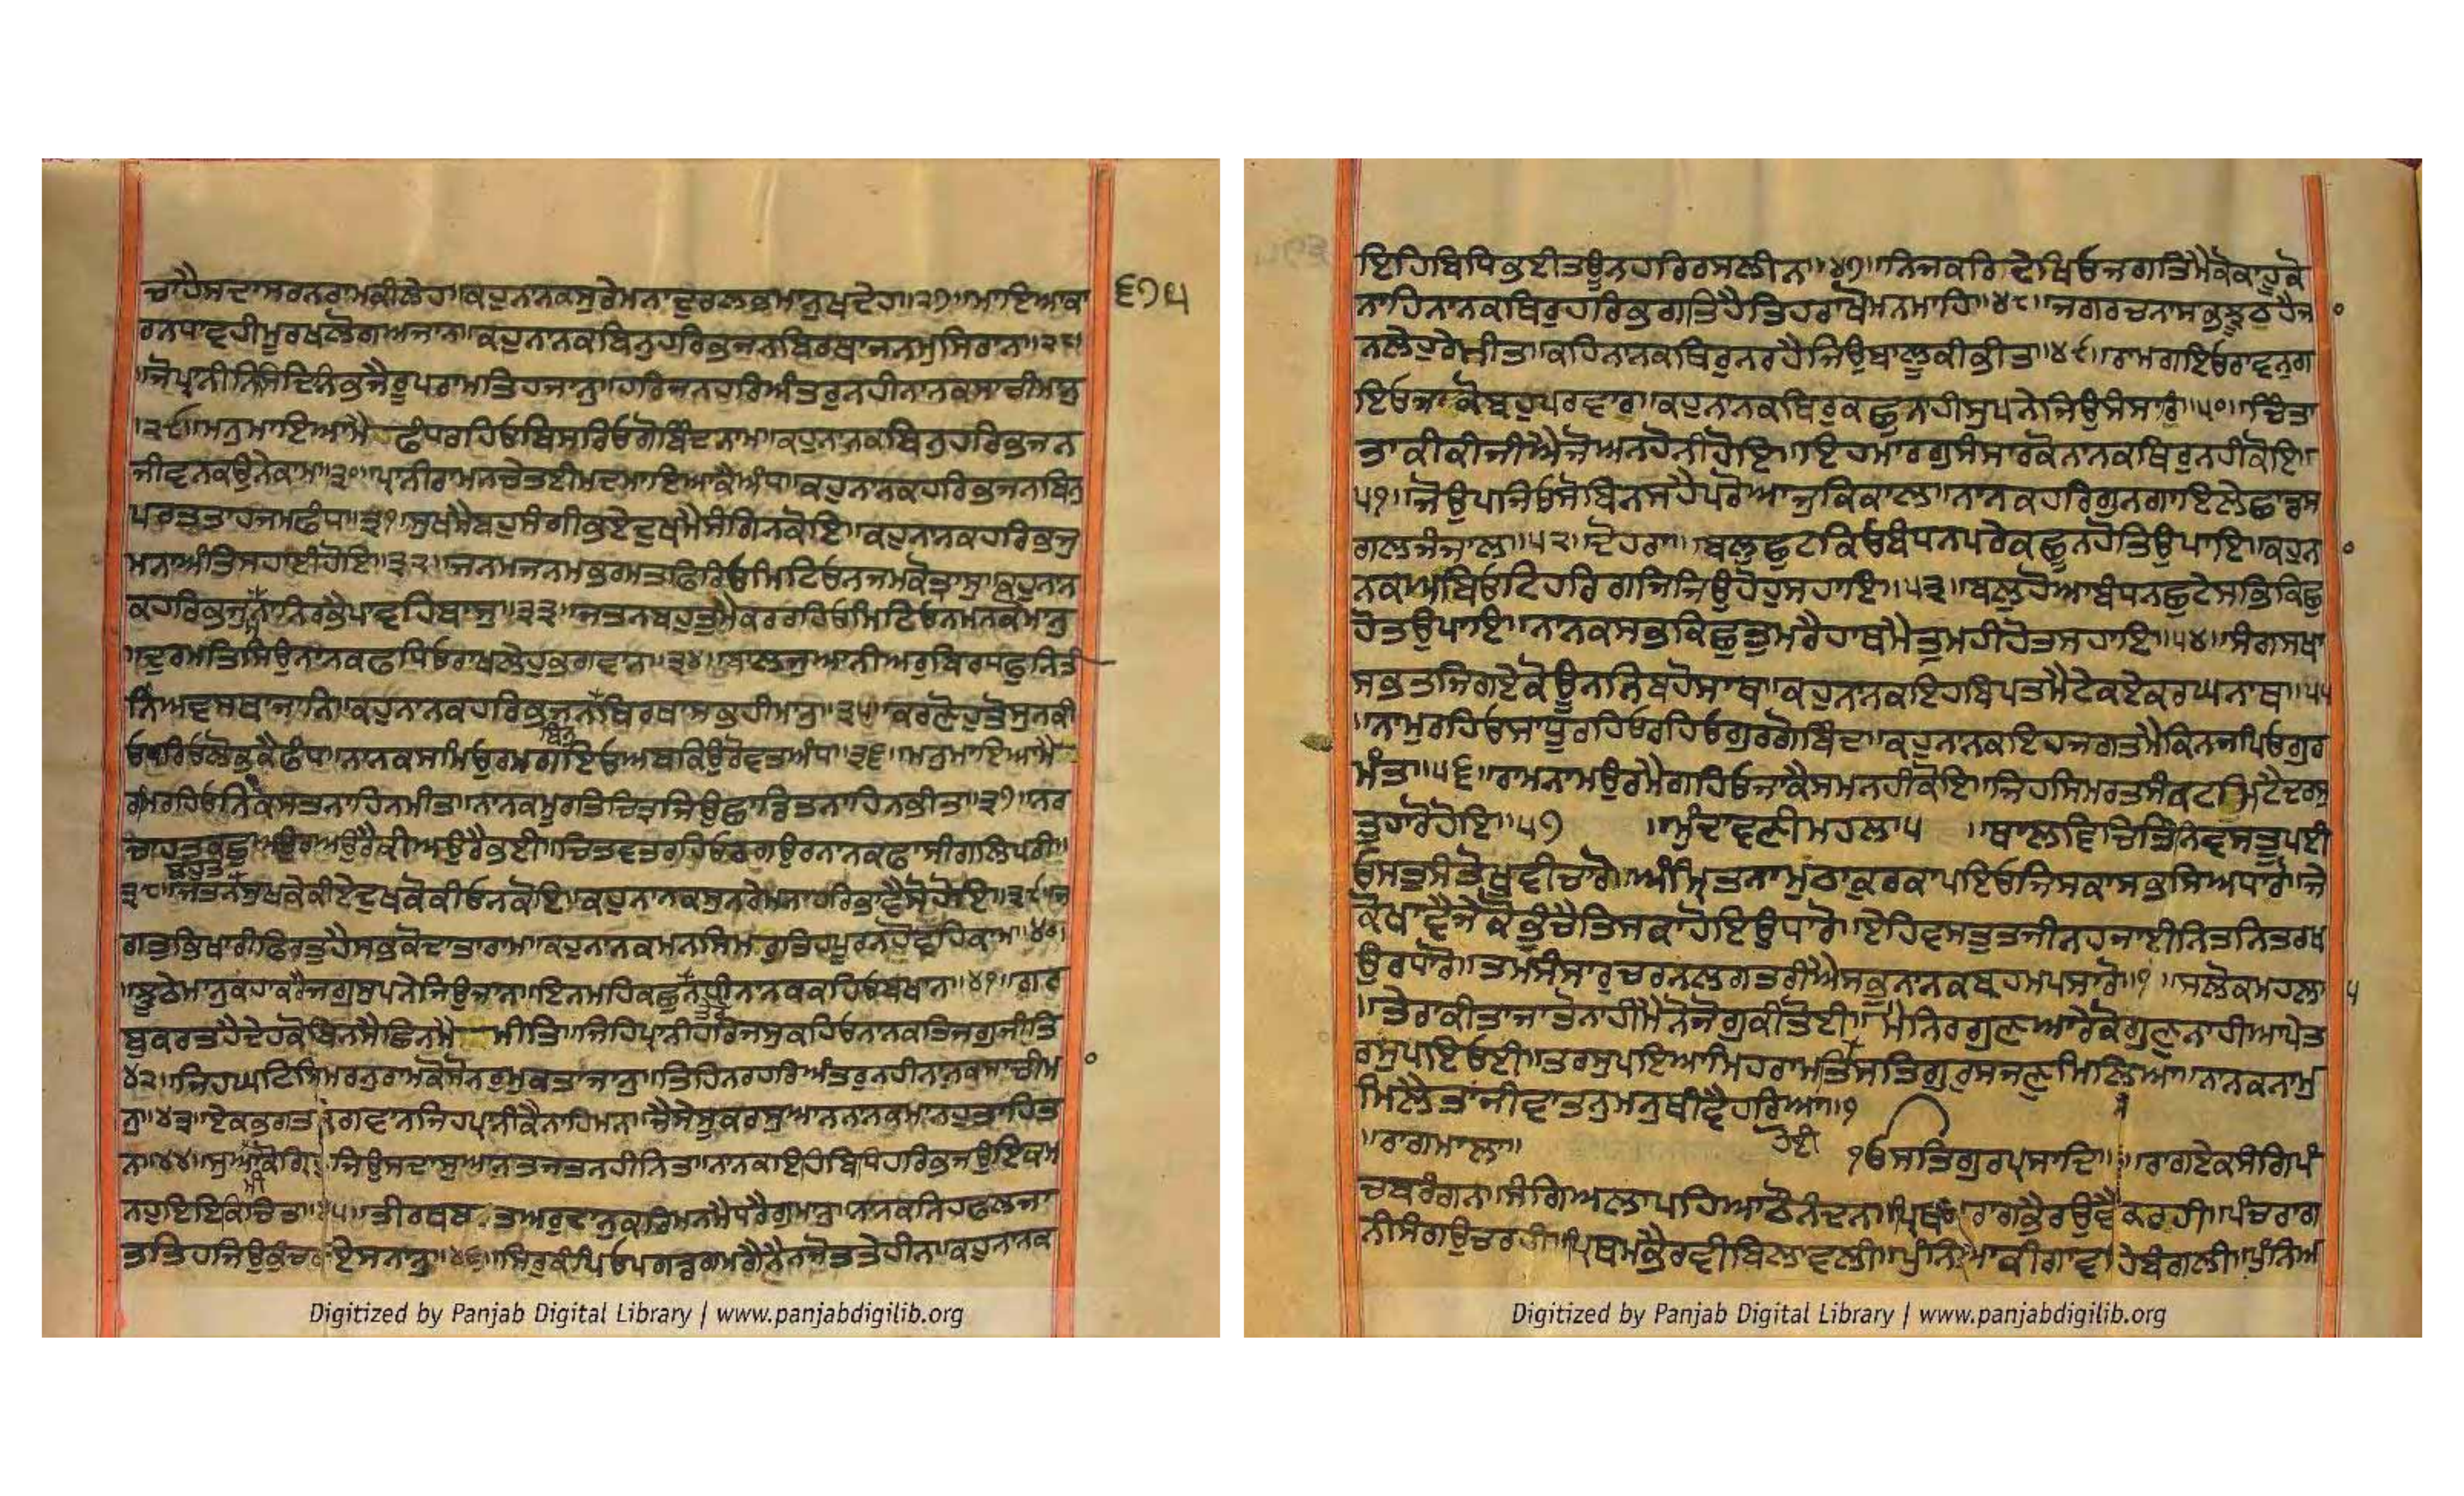 ਚਾਹੈਸਦਾਸਰਨਰਾਮਕੀਲੇਹ॥ਕਹੁਨਾਨਕਸੁਰੇਮਨਾਦੁਰਲਭਮਾਨੁਖਦੇਹ॥੨੭॥ਮਾਇਆਕਾ
੬੧੫
ਰਨਧਾਵਹੀਮੂਰਖਲੋਗਅਜਾਨ॥ਕਹੁਨਾਨਕਬਿਨੁਹਰਿਭਜਨਬਿਰਥਾਜਨਮੁਸਿਰਾਨ॥੨੮॥
ਜੋਪ੍ਰਾਨੀਨਿਸਿਦਿਨਿਭਜੈਰੂਪਰਾਮਤਿਹਜਾਨੁ॥ਹਰਿਜਨਹਰਿਅੰਤਰੁਨਹੀਨਾਨਕਸਾਚੀਮਾਨੁ
॥੨੯॥ਮਨੁਮਾਇਆਮੈਫੰਧਰਹਿਓਬਿਸਰਿਓਗੋਬਿੰਦਨਾਮ॥ਕਹੁਨਾਨਕਬਿਨੁਹਰਿਭਜਨ
ਜੀਵਨਕਉਨੇਕਾਮ॥੩੦॥ਪ੍ਰਾਨੀਰਾਮਨਚੇਤਈਮਦਮਾਇਆਕੈਅੰਧ॥ਕਹੁਨਾਨਕਹਰਿਭਜਨਬਿਨੁ
ਪਰਤਤਾਹਜਮਫੰਧ॥੩੧॥ਸੁਖਮੈਬਹੁਸੰਗੀਭਏਦੁਖਮੈਸੰਗਿਨਕੋਇ॥ਕਹੁਨਾਨਕਹਰਿਭਜੁ
ਮਨਾਅੰਤਿਸਹਾਈਹੋਇ॥੩੨॥ਜਨਮਜਨਮਭਰਮਤਫਿਰਿਓਮਿਟਿਓਨਜਮਕੋਤ੍ਰਾਸੁ॥ਕਹੁਨਾਨ
ਕਹਰਿਭਜੁਮਨਾਨਿਰਭੈਪਾਵਹਿਬਾਸੁ॥੩੩॥ਜਤਨਬਹੁਤੁਮੈਕਰਰਹਿਓਮਿਟਿਓਨਮਨਕੋਮਾਨੁ
॥ਦੁਰਮਤਿਸਿਉਨਾਨਕਫਧਿਓਰਾਖਲੇਹੁਭਗਵਾਨ॥੩੪॥ਬਾਲਜੁਆਨੀਅਰੁਬਿਰਧਫੁਨਿਤੀ
ਨਿਅਵਸਥਾਜਾਨਿ॥ਕਹੁਨਾਨਕਹਰਿਭਜਨਬਿਨੁਬਿਰਥਾਸਭਹੀਮਾਨੁ॥੩੫॥ਕਰਣੋਹੁਤੋਸੁਨਕੀ
ਓਪਰਿਓਲੋਭਕੈਫੰਧ॥ਨਾਨਕਸਮਿਓਰਮਗਇਓਅਬਕਿਉਰੋਵਤਅੰਧ॥੩੬॥ਮਨੁਮਾਇਆਮੈ
ਰਮਰਹਿਓਨਿਕਸਤਨਾਹਿਨਮੀਤ॥ਨਾਨਕਮੂਰਤਿਚਿਤ੍ਰਜਿਉਛਾਡਿਤਨਾਹਿਨਭੀਤ॥੩੭॥ਨਰ
ਚਾਹਤਕਛੁਅਉਰਅਉਰੈਕੀਅਉਰੈਭਈ॥ਚਿਤਵਤਰਹਿਓਠਗਉਰਨਾਨਕਫਾਸੀਗਲਿਪਰੀ॥
੩੮॥ਜਤਨਬਹੁਤਸੁਖਕੇਕੀਏਦੁਖਕੋਕੀਓਨਕੋਇ॥ਕਹੁਨਾਨਕਸੁਨਰੇਮਨਾਹਰਿਭਾਵੈਸੋਹੋਇ॥੩੯॥ਜ
ਗਤੁਭਿਖਾਰੀਫਿਰਤੁਹੈਸਭਕੋਦਾਤਾਰਾਮ॥ਕਹੁਨਾਨਕਮਨਸਿਮਰੁਤਿਹਪੂਰਨਹੋਵਹਿਕਾਮ॥੪੦॥
॥ਝੂਠੈਮਾਨੁਕਹਾਕਰੈਜਗੁਸੁਪਨੇਜਿਉਜਾਨ॥ਇਨਮਹਿਕਛੁਤੇਰੋਨਹੀਨਾਨਕਕਹਿਓਬਖਾਨ॥੪੧॥ਗਰ
ਬੁਕਰਤਹੈਦੇਹਕੋਬਿਨਸੈਛਿਨਮੈ ਮੀਤਿ॥ਜਿਹਿਪ੍ਰਾਨੀਹਰਿਜਸੁਕਹਿਓਨਾਨਕਤਿਜਗੁਜੀਤਿ
੪੨॥ਜਿਹਘਟਿਸਿਮਰਨੁਰਾਮਕੋਸੋਨਰੁਮੁਕਤਾਜਾਨੁ॥ਤਿਹਿਨਰਹਰਿਅੰਤਰੁਨਹੀਨਾਨਕਸਾਚੀਮਾ
ਨੁ॥੪੩॥ਏਕਭਗਤਿਭਗਵਾਨਜਿਹਪ੍ਰਾਨੀਕੈਨਾਹਿਮਨਾ॥ਜੈਸੇਸੂਕਰਸੁਆਨਨਾਨਕਮਾਨਹੁਤਾਹਿਤ
ਨਾ॥੪੪॥ਸੁਆਮੀਕੋਗ੍ਰਿਹੁਜਿਉਸਦਾਸੁਆਨਤਜਤਨਹੀਨਿਤ॥ਨਾਨਕਇਹਿਬਿਧਿਹਰਿਭਜਉਇਕਮ
ਨਹੁਇਇਕਿਚਿਤਿ॥੪੫॥ਤੀਰਥਬਰਤਅਰੁਦਾਨੁਕਰਿਮਨਮੈਧਰੈਗੁਮਾਨੁ॥ਨਾਨਕਨਿਹਫਲਜਾ
ਤਤਿਹਜਿਉਕੁੰਚਰਇਸਨਾਨੁ॥੪੬॥ਸਿਰੁਕੰਪਿਓਪਗਡਗਮਗੈਨੈਨਜੋਤਤੇਹੀਨ॥ਕਹੁਨਾਨਕ
Digitized by Panjab Digital Library | www.panjabdigilib.org
ਇਹਿਬਿਧਿਭਈਤਊਨਹਰਿਰਸਲੀਨ॥੪੭॥ਨਿਜਕਰਿਦੇਖਿਓਜਗਤਿਮੈਕੋਕਾਹੂਕੋ
ਨਾਹਿਨਾਨਕਥਿਰੁਹਰਿਭਗਤਿਹੈਤਿਹਰਾਖੋਮਨਮਾਹਿ॥੪੮॥ਜਗਰਚਨਾਸਭਝੂਠਹੈਜਾ
ਨਲੇਹੁਰੇਮੀਤ॥ਕਹਿਨਾਨਕਥਿਰੁਨਰਹੈਜਿਉਬਾਲੂਕੀਭੀਤ॥੪੯॥ਰਾਮਗਇਓਰਾਵਨੁਗ
ਇਓਜਾਕੋਬਹੁਪਰਵਾਰ॥ਕਹੁਨਾਨਕਥਿਰੁਕਛੁਨਹੀਸੁਪਨੇਜਿਉਸੰਸਾਰੁ॥੫੦॥ਚਿੰਤਾ
ਤਾਕੀਕੀਜੀਐਜੋਅਨਹੋਨੀਹੋਇ॥ਇਹਮਾਰਗੁਸੰਸਾਰਕੋਨਾਨਕਥਿਰੁਨਹੀਕੋਇ॥
੫੧॥ਜੋਉਪਜਿਓਸੋਬਿਨਸਹੈਪਰੋਆਜੁਕਿਕਾਲ॥ਨਾਨਕਹਰਿਗੁਨਗਾਇਲੇਛਾਡਸ
ਗਲਜੰਜਾਲ॥੫੨॥ਦੋਹਰਾ॥ਬਲੁਛੁਟਕਿਓਬੰਧਨਪਰੇਕਛੂਨਹੋਤਿਉਪਾਇ॥ਕਹੁਨਾ
ਨਕਅਬਿਓਟਿਹਰਿਗਜਿਜਿਉਹੋਹੁਸਹਾਇ॥੫੩॥ਬਲੁਹੋਆਬੰਧਨਛੁਟੇਸਭਿਕਿਛੁ
ਹੋਤਉਪਾਇ॥ਨਾਨਕਸਭਕਿਛੁਤੁਮਰੈਹਾਥਮੈਤੁਮਹੀਹੋਤਸਹਾਇ॥੫੪॥ਸੰਗਸਖਾ
ਸਭਤਜਿਗਏਕੋਊਨਨਿਬਹੋਸਾਥ॥ਕਹੁਨਾਨਕਇਹਬਿਪਤਮੈਟੇਕਏਕਰਘਨਾਥ॥੫੫
॥ਨਾਮੁਰਹਿਓਸਾਧੂਰਹਿਓਰਹਿਓਗੁਰਗੋਬਿੰਦ॥ਕਹੁਨਾਨਕਇਹਜਗਤਮੈਕਿਨਜਪਿਓਗੁਰ
ਮੰਤ॥੫੬॥ਰਾਮਨਾਮਉਰਮੈਗਹਿਓਜਾਕੈਸਮਨਹੀਕੋਇ॥ਜਿਹਸਿਮਰਤਸੰਕਟਮਿਟੈਦਰਸੁ
ਤੁਹਾਰੋਹੋਇ॥੫੭ ॥ਮੁੰਦਾਵਣੀਮਹਲਾ੫ ॥ਥਾਲਵਿਚਿਤਿੰਨਿਵਸਤੂਪਈ
ਓਸਤੁਸੰਤੋਖੁਵੀਚਾਰੋ॥ਅੰਮ੍ਰਿਤਨਾਮੁਠਾਕੁਰਕਾਪਇਓਜਿਸਕਾਸਭਸਿਅਧਾਰੋ॥ਜੇ
ਕੋਖਾਵੈਜੇਕੋਭੁੰਚੈਤਿਸਕਾਹੋਇਉਧਾਰੋ॥ਏਹਿਵਸਤੁਤਜੀਨਹਜਾਈਨਿਤਨਿਤਰਖ
ਉਰਧਾਰੋ॥ਤਮਸੰਸਾਰੁਚਰਨਲਗਤਰੀਐਸਭੁਨਾਨਕਬ੍ਰਹਮਪਸਾਰੋ॥੧ ॥ਸਲੋਕਮਹਲਾ ੫
॥ਤੇਰਾਕੀਤਾਜਾਤੋਨਾਹੀਮੈਨੋਜੋਗੁਕੀਤੋਈ॥ਮੈਨਿਰਗੁਣਆਰੇਕੋਗੁਣਨਾਹੀਆਪੇਤ
ਰਸੁਪਇਓਈ॥ਤਰਸੁਪਇਆਮਿਹਰਾਮਤਿਹੋਈਸਤਿਗੁਰੁਸਜਣੁਮਿਲਿਆ॥ਨਾਨਕਨਾਮੁ
ਮਿਲੈਤਾਂਜੀਵਾਤਨੁਮਨੁਥੀਵੈਹਰਿਆ॥੧
॥ਰਾਗਮਾਲਾ॥ ੧ੴਸਤਿਗੁਰਪ੍ਰਸਾਦਿ॥ ॥ਰਾਗਏਕਸੰਗਿਪੰ
ਚਬਰੰਗਨ॥ਸੰਗਿਅਲਾਪਹਿਆਠੋਨੰਦਨ॥ਪ੍ਰਿਥਮਰਾਗਭੈਰਉਵੈਕਰਹੀ॥ਪੰਚਰਾਗ
ਨੀਸੰਗਉਚਰਹੀ॥ਪ੍ਰਿਥਮਭੈਰਵੀਬਿਲਾਵਲੀ॥ਪੁੰਨਿਆਕੀਗਾਵਹਿਬੰਗਲੀ॥ਪੁੰਨਿਅ
Digitized by Panjab Digital Library | www.panjabdigilib.org